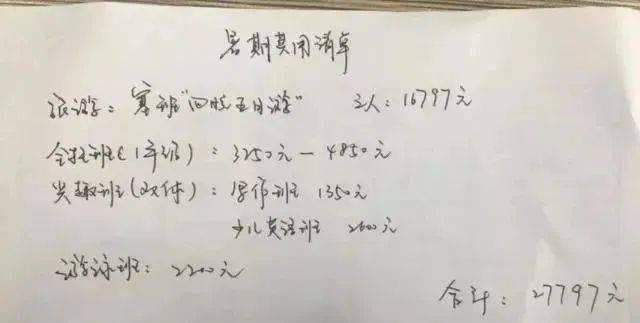 暑期费用清单
旅游：塞班"四晚五日游" 三人：16797元
全托班(1年级)：3250元—4850元
兴趣班()：班 1350元
少儿英语班 2600元
游泳班：2200元
合计：27797元